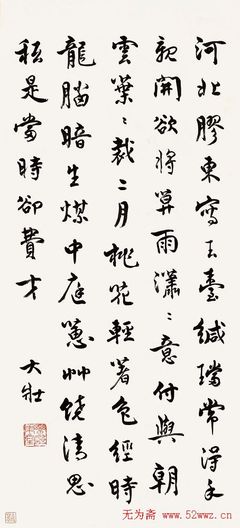 河北膠東寫玉臺緘璫常得手
親開欲將算雨瀟瀟意付與朝
雲葉葉裁二月桃花輕著色經時
龍腦暗生煤中庭蕙艸饒清思
秖是當時卻費才
大壯
无为斋 www.52wwz.cn